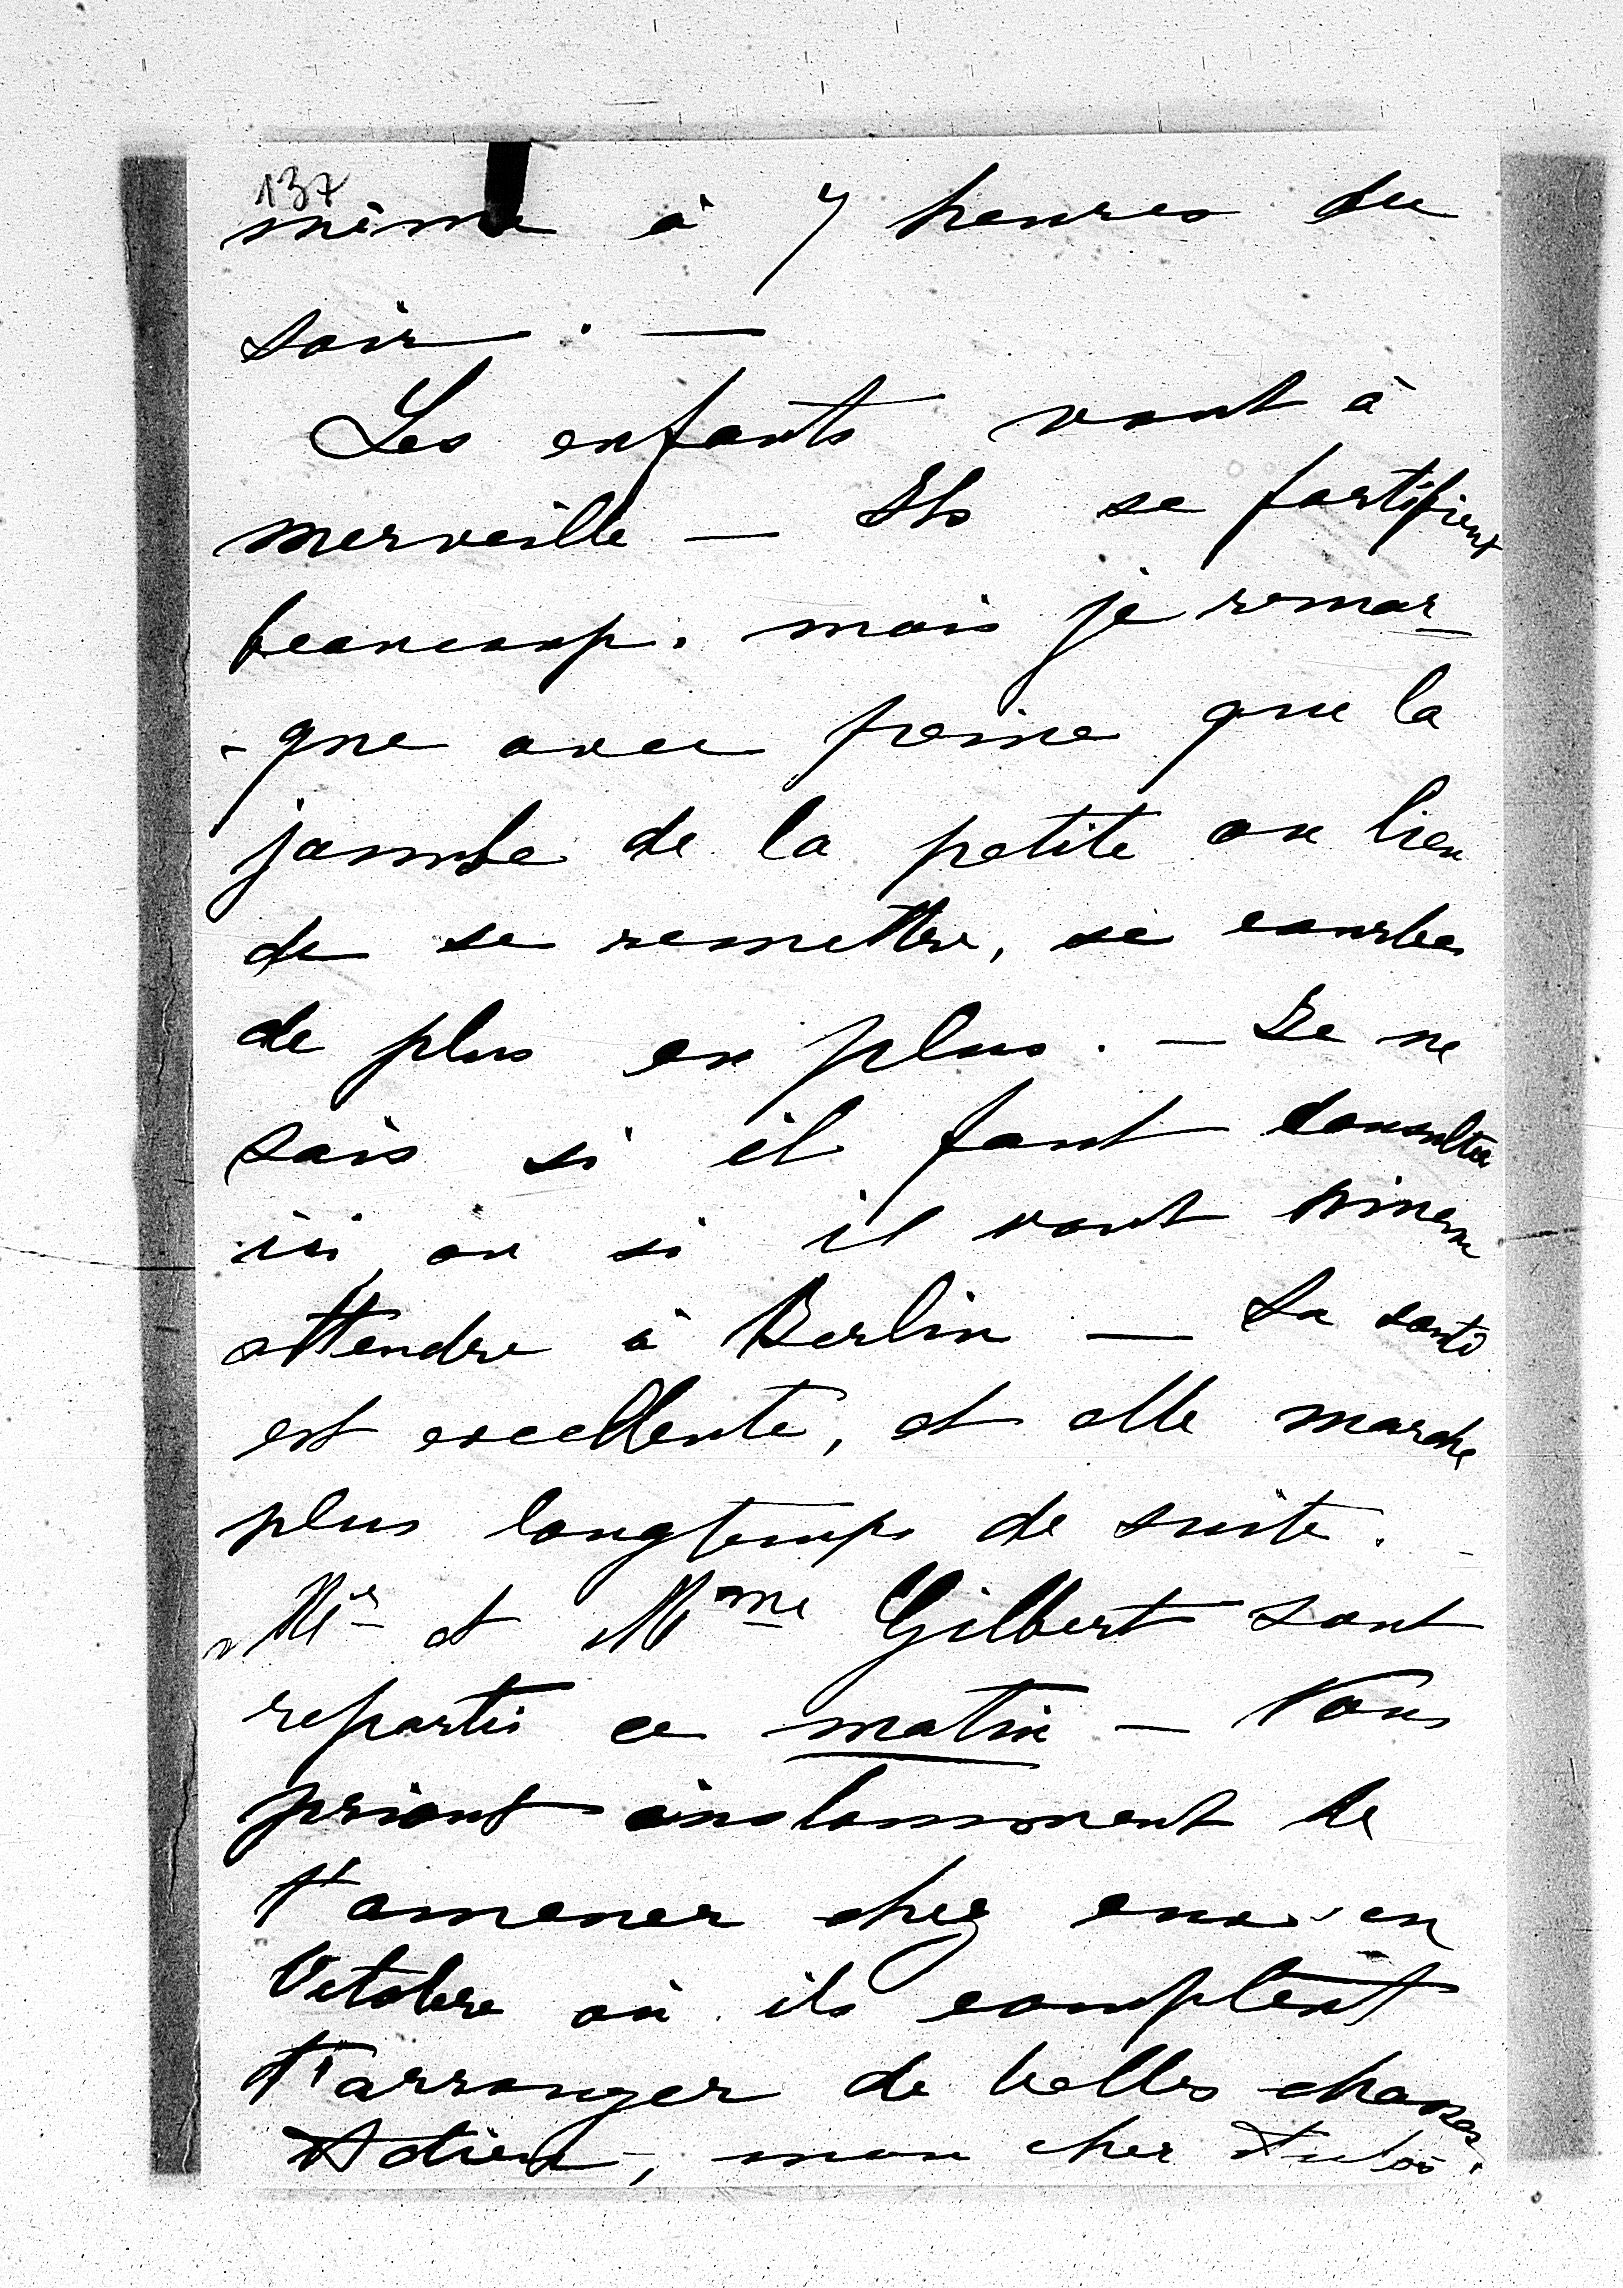 137
même à 7 heures du
soir. —
Les enfants vont à
merveille — Ils se fortifient
beaucoup. mais je remar-
-que avec peine que la
jambe de la petite au lieu
de se remettre, se courbe
de plus en plus. — Je ne
sais si il faut consulter
ici ou si il vaut mieux
attendre à Berlin — Sa santé
est excellente, et elle marche
plus longtemps de suite.
Mr et Mme Gilbert sont
repartis ce matin — Vous
priant instamment de
t'amener chez eux en
Octobre où ils comptent
t'arranger de belles chasses.
Adieu, mon cher